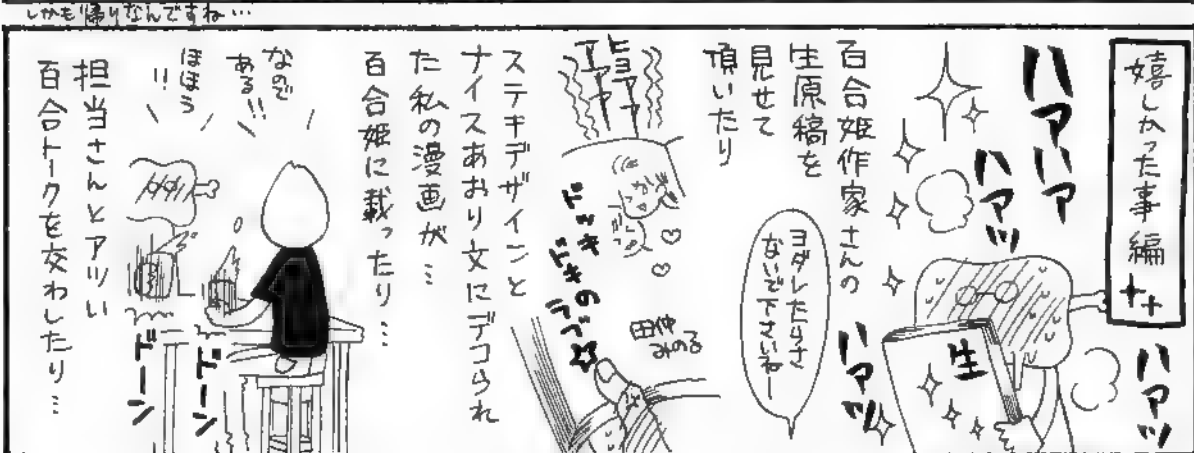 しかも帰りなんですね…
嬉しかった事編
ハァハァ
ハァッ
ハァッ
ハァッ
生
百合姫作家さんの
生原稿を
見せて
頂いたり
ヨダレたらさ
ないで下さいねー
ヒョアァァ
ドッキ
ドキの
ラブ☆
田仲
みのる
ステキデザインと
ナイスあおり文にデコられ
た私の漫画が…
百合姫に載ったり…
なので
ある!!
ほほう
!!
ドーン
ドーン
担当さんとアツい
百合トークを交わしたり…